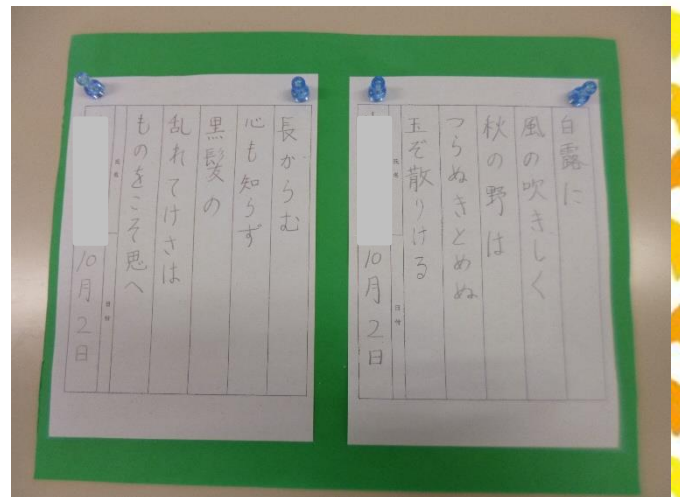 白露に
風の吹きしく
秋の野は
つらぬきとめぬ
玉ぞ散りける
氏名
日付
10月2日
長からむ
心も知らず
黒髪の
乱れてけさは
ものをこそ思へ
氏名
日付
10月2日